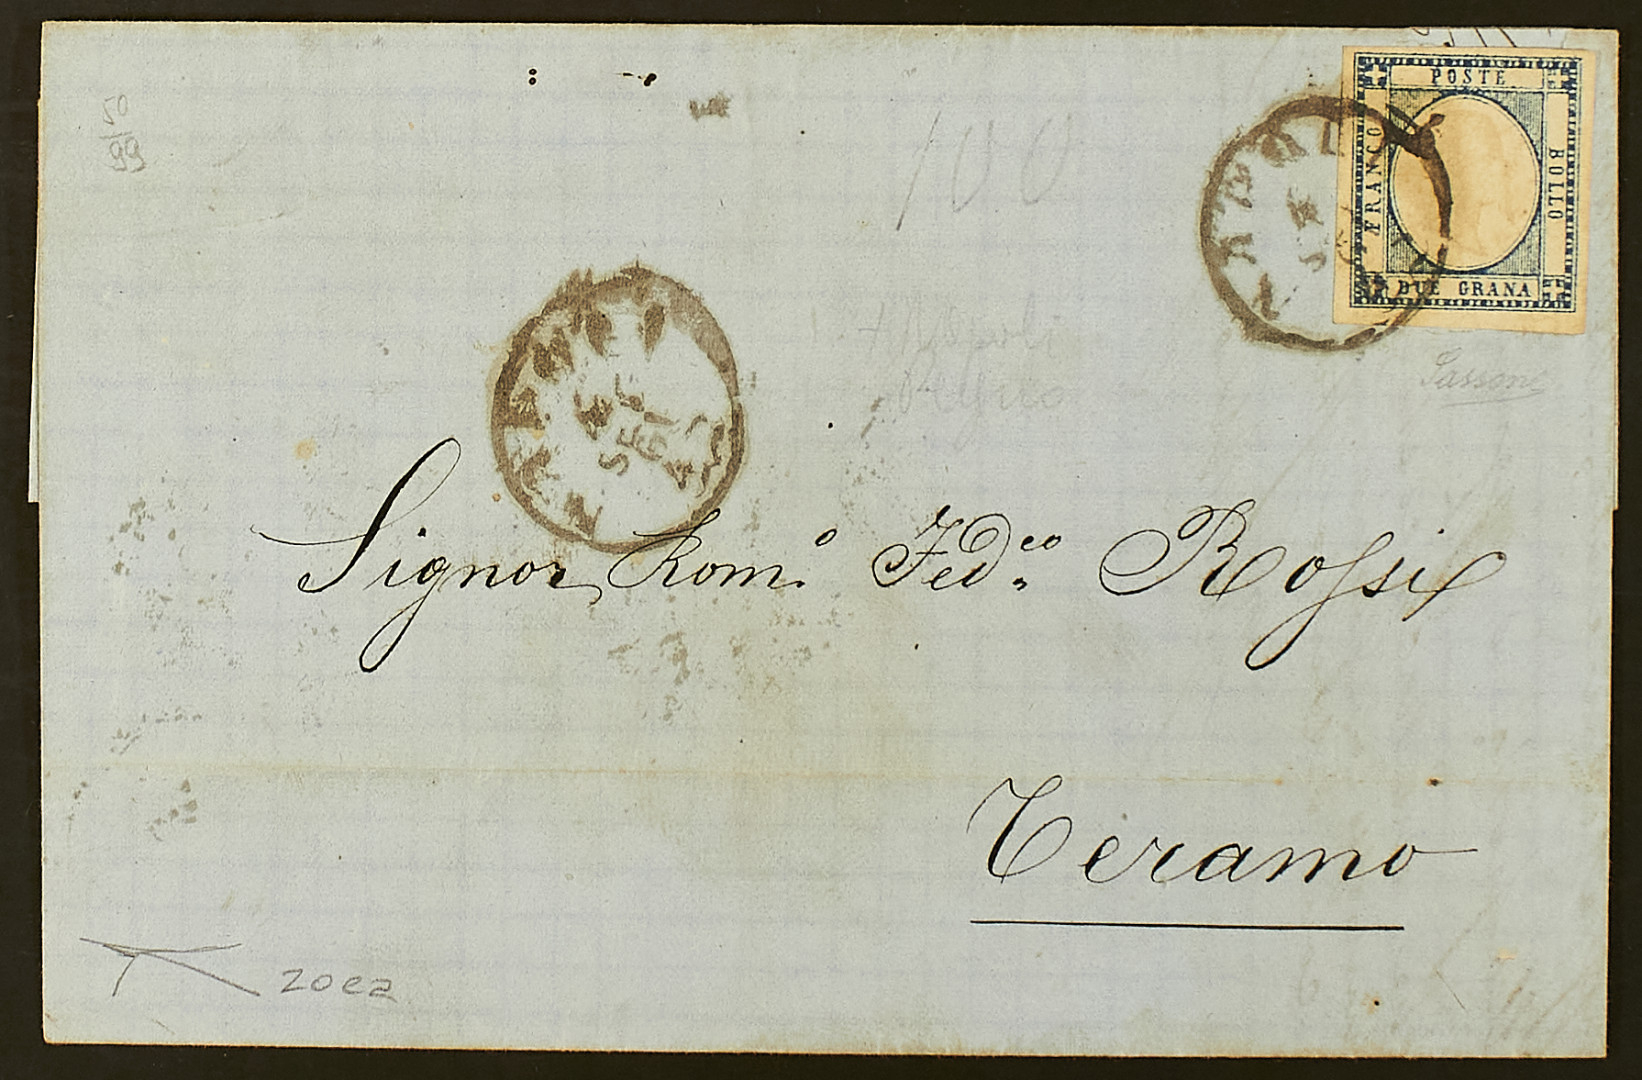 50
99
100
POSTE
FRANCO
BOLLO
DUE GRANA
NAPOLI
NAPOLI
SET
61
Signor Rom.o Fed.co Rossi
Teramo